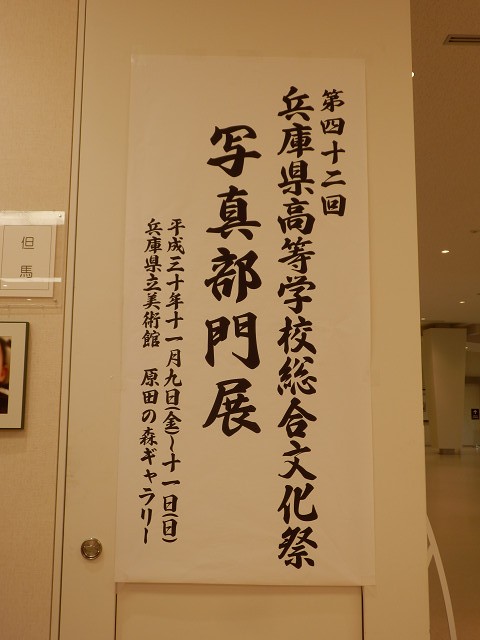 第四十二回
兵庫県高等学校総合文化祭
写真部門展
平成三十年十一月九日(金)~十一日(日)
兵庫県立美術館 原田の森ギャラリー
但馬